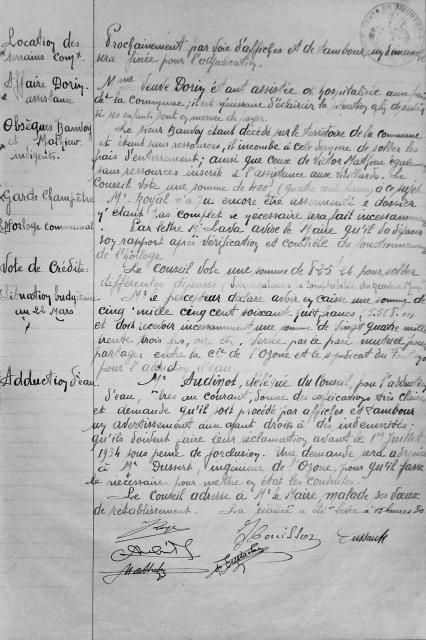 Location des
terrains Comx
Prochainement par voie d'affiches et de tambour, un dimanche
sera fixée pour l'adjudication.
Affaire Dorin
assistance
Mme Veuve Dorin étant assistée et hospitalisée aux frais
de la Commune, il est nécessaire d'éclaircir la situation afin de savoir
si ses enfants sont en mesure de payer.
Obsèques Bambay
et Mathieu
indigents.
Le sieur Bambay étant décédé sur le territoire de la commune
et étant sans ressources, il incombe à cette dernière de solder les
frais d'enterrement; ainsi que ceux de Victor Mathieu également
sans ressources inscrit à l'assistance aux vieillards. Le
Conseil vote une somme de 400f (quatre cent francs) à ce sujet.
Garde Champêtre
Mr Royal n'a pu encore être assermenté le dossier
n'étant pas complet le nécessaire sera fait incessamment
Horloge communal
Par lettre Mr Lava avise le Maire qu'il va déposer
son rapport après vérification et contrôle du fonctionnement
de l'horloge.
Vote de Crédits:
Le Conseil vote une somme de pour solder
différentes dépenses
Situation budgétaire
au 22 Mars
Mr le percepteur déclare avoir en caisse une somme de
cinq mille cinq cent soixante huit francs (5.568.
et doit recevoir incessamment une somme de vingt quatre mille
trente trois frs, versée par le pari mutuel pour
partager entre la Cie de l'Ozone et le syndicat du
pour l'adduction d'eau.
Adduction d'eau.
Mr Audinot, délégué du Conseil, pour l'adduction
d'eau, très au courant, donne des explications très claires
et demande qu'il soit procédé par affiches et tambour
un avertissement aux ayant droits à des indemnités.
qu'ils doivent faire leur réclamation avant le 1er Juillet
1934 sous peine de forclusion. Une demande sera adressée
à Mr Dussert, ingénieur de l'Ozone, pour qu'il fasse
le nécessaire pour mettre en état les conduites.
Le Conseil adresse à Mr le Maire, malade ses vœux
de rétablissement. La séance a été levée à 15 heures 30